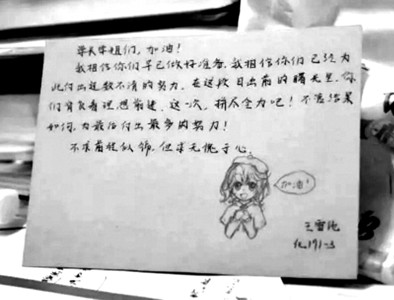 学长学姐们，加油！
我相信你们早已做好准备，我相信你们已经为
此付出过数不清的努力。在这段日出前的曙光里，你
们背负着理想前进，这一次，拼尽全力吧！不管结果
如何，为最后付出最多的努力！
不求前程似锦，但求无愧于心。
加油！
王雪纯